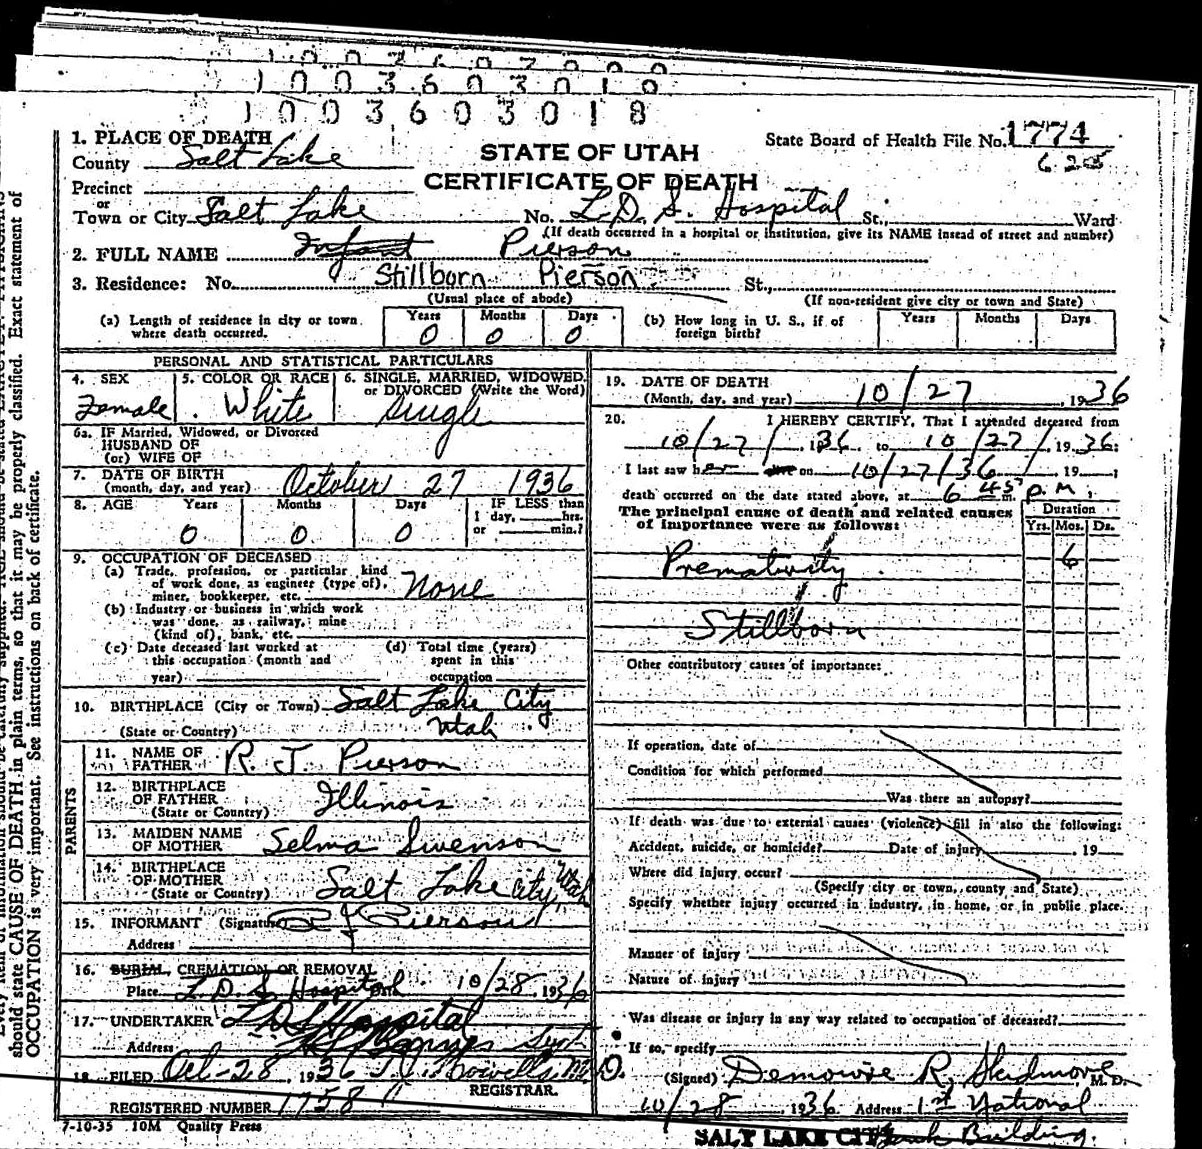 1003603018
1. PLACE OF DEATH
County Salt Lake
STATE OF UTAH
CERTIFICATE OF DEATH
State Board of Health File No. 1774
625
Precinct
or
Town or City Salt Lake No. L.D.S. Hospital St., Ward
(If death occurred in a hospital or institution, give its NAME insead of street and number)
2. FULL NAME Infant Pierson
3. Residence: No. Stillborn Pierson St.,
(Usual place of abode) (If non-resident give city or town and State)
(a) Length of residence in city or town where death occurred. Years 0 Months 0 Days 0
(b) How long in U. S., if of foreign birth? Years Months Days
PERSONAL AND STATISTICAL PARTICULARS
4. SEX Female
5. COLOR OR RACE White
6. SINGLE, MARRIED, WIDOWED, or DIVORCED (Write the Word) Single
6a. IF Married, Widowed, or Divorced
HUSBAND OF
(or) WIFE OF
7. DATE OF BIRTH
(month, day, and year) October 27 1936
8. AGE Years 0 Months 0 Days 0 IF LESS than 1 day, hrs. or min.?
9. OCCUPATION OF DECEASED
(a) Trade, profession, or particular kind
of work done, as engineer (type of),
miner, bookkeeper, etc. None
(b) Industry or business in which work
was done, as railway, mine
(kind of), bank, etc.
(c) Date deceased last worked at
this occupation (month and
year)
(d) Total time (years)
spent in this
occupation
10. BIRTHPLACE (City or Town) Salt Lake City
(State or Country) Utah
PARENTS
11. NAME OF FATHER R. J. Pierson
12. BIRTHPLACE OF FATHER (State or Country) Illinois
13. MAIDEN NAME OF MOTHER Selma Swenson
14. BIRTHPLACE OF MOTHER (State or Country) Salt Lake City, Utah
15. INFORMANT (Signature) R J Pierson
Address
16. BURIAL, CREMATION OR REMOVAL
Place L.D.S. Hospital 10/28 1936
17. UNDERTAKER L.D.S Hospital
Address Supt
18. FILED Oct-28 1936 M.D.
REGISTRAR.
REGISTERED NUMBER 1758
7-10-35 10M Quality Press
19. DATE OF DEATH
(Month, day, and year) 10/27, 1936
20. I HEREBY CERTIFY, That I attended deceased from
10/27/, 1936 to 10/27/, 1936;
I last saw her on 10/27/36, 19 ;
death occurred on the date stated above, at 6 45 m. P.M.
The principal cause of death and related causes
of importance were as follows:
Duration
Yrs. Mos. Ds.
6
Prematurity
Stillborn
Other contributory causes of importance:
If operation, date of
Condition for which performed
Was there an autopsy?
If death was due to external causes (violence) fill in also the following:
Accident, suicide, or homicide? Date of injury 19
Where did injury occur?
(Specify city or town, county and State)
Specify whether injury occurred in industry, in home, or in public place.
Manner of injury
Nature of injury
Was disease or injury in any way related to occupation of deceased?
If so, specify
(Signed) R. Skidmore, M. D.
10/28 1936 Address 1st National
SALT LAKE CITY Bank Building.
should state CAUSE OF DEATH in plain terms, so that it may be properly classified. Exact statement of
OCCUPATION is very important. See instructions on back of certificate.